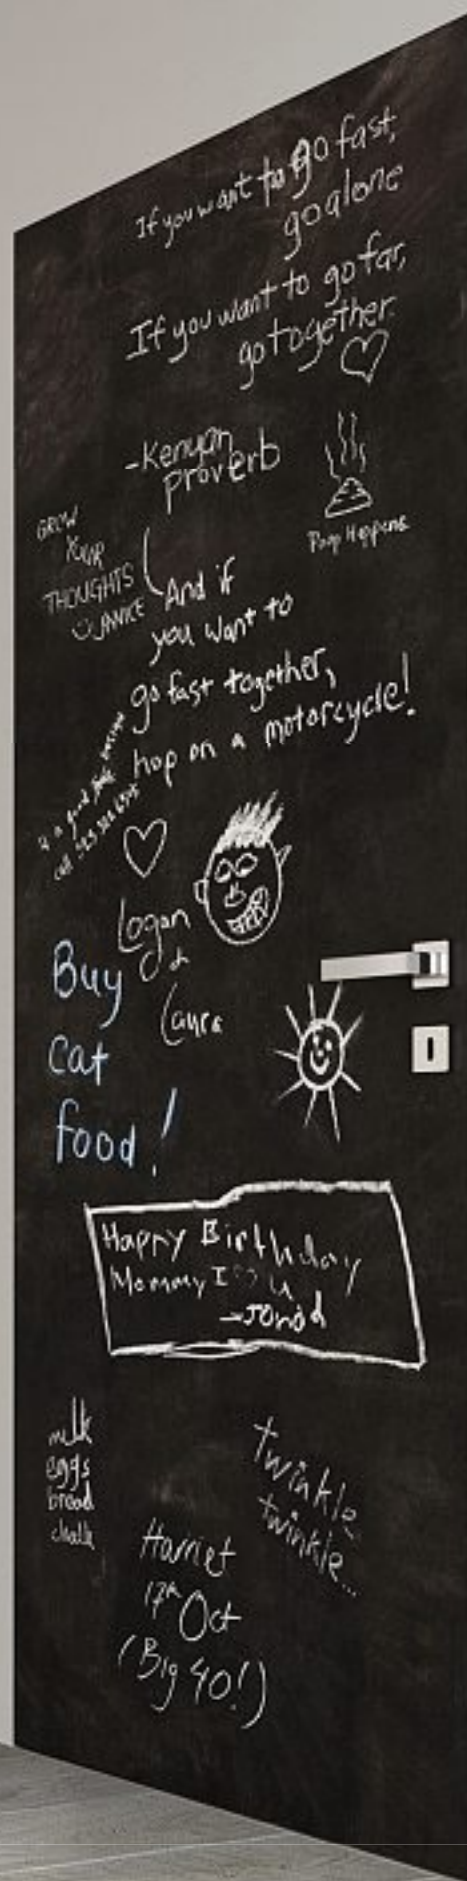 If you want to go fast,
go alone
If you want to go far,
go together.
-Kenyan
Proverb
Poop Happens
GROW
YOUR
THOUGHTS
JANICE
And if
you want to
go fast together,
hop on a motorcycle!
a good
call
Logan
&
Laura
Buy
cat
food!
Happy Birthday
Mommy I ♡ U
-Jarod
milk
eggs
bread
chalk
twinkle,
twinkle...
Harriet
17th
Oct
(Big 40!)